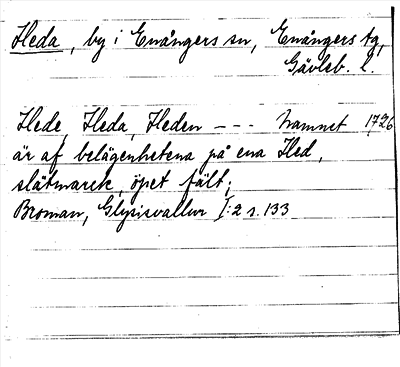 Heda, by i Enångers sn, Enångers tg,
Gävleb. l.
Hede, Heda, Heden --- Namnet 1726
är af belägenhetena på ena Hed,
slätmarck, öpet fält;
Broman, Glysisvallur I:2 s. 133